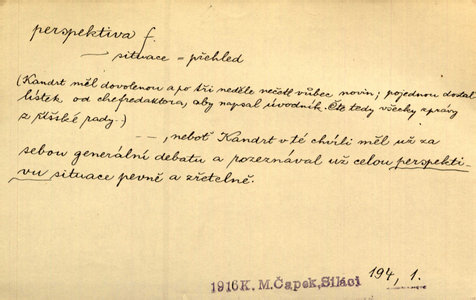 perspektiva f.
— situace = přehled
(Kandrt měl dovolenou a po tři neděle nečetl vůbec novin; pojednou dostal
lístek od chefredaktora, aby napsal úvodník. Čte tedy všecky zprávy
z říšské rady.)
– –, neboť Kandrt v té chvíli měl už za
sebou generální debatu a rozeznával už celou perspekti-
vu situace pevně a zřetelně.
1916 K. M. Čapek, Siláci 194, 1.